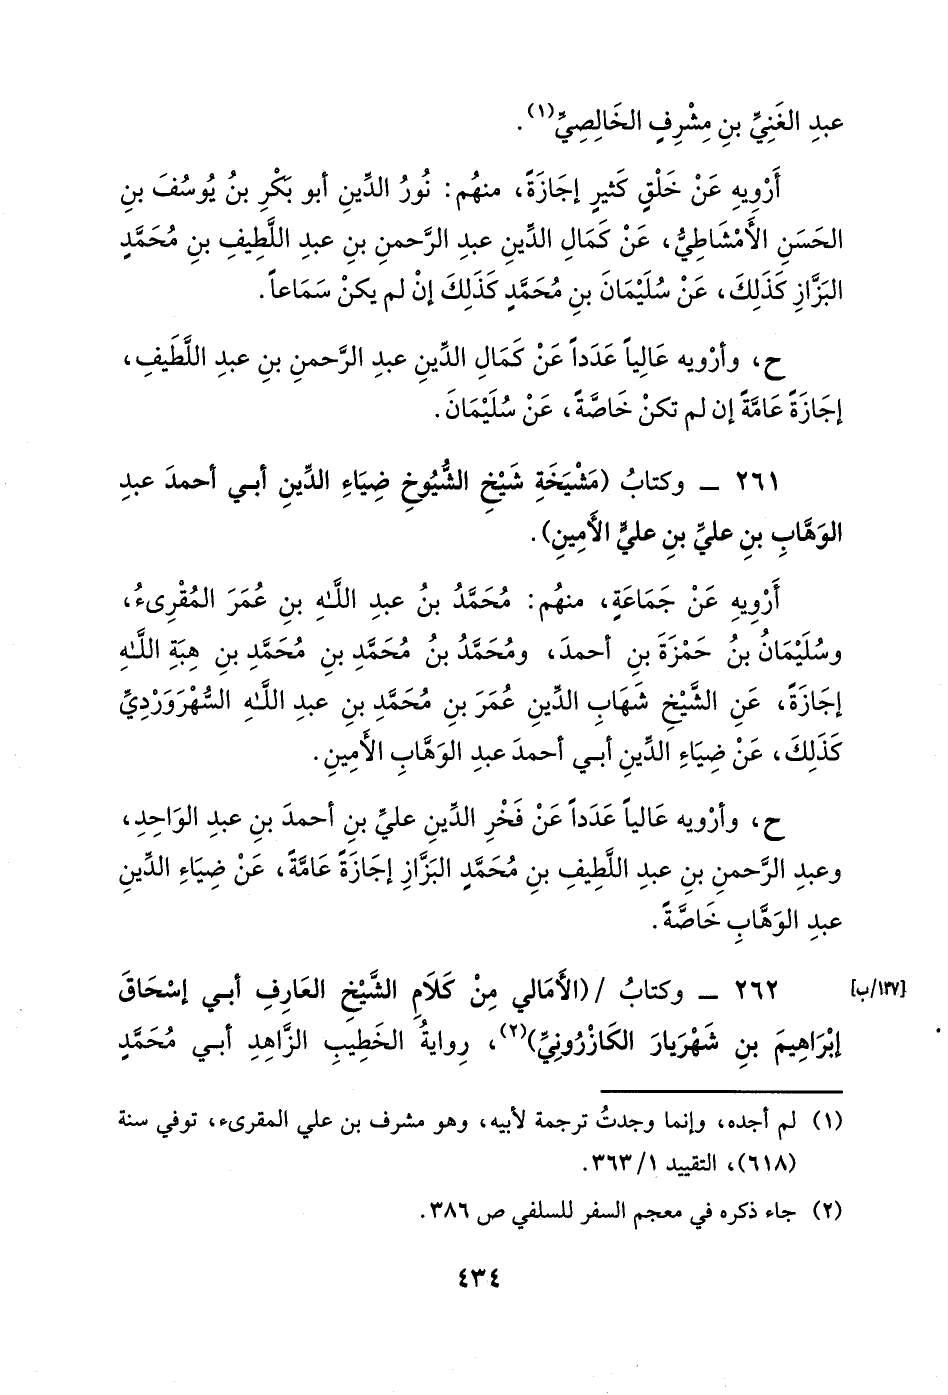 عبدِ الغَنِيِّ بنِ مِشْرِفٍ الخَالِصِيِّ(١).
أَرْوِيهِ عَنْ خَلْقٍ كَثيرٍ إجَازَةً، منهُم: نُورُ الدِّينِ أبو بَكْرِ بنُ يُوسُفَ بنِ
الحَسَنِ الأَمْشَاطِيُّ، عَنْ كَمَالِ الدِّينِ عبدِ الرَّحمنِ بنِ عبدِ اللَّطِيفِ بنِ مُحَمَّدٍ
البَزَّازِ كَذَلِكَ، عَنْ سُلَيْمَانَ بنِ مُحَمَّدٍ كَذَلِكَ إنْ لم يكنْ سَمَاعاً.
ح، وأرْويه عَالِياً عَدَداً عَنْ كَمَالِ الدِّينِ عبدِ الرَّحمنِ بنِ عبدِ اللَّطَيفِ،
إجَازَةً عَامَّةً إن لم تكنْ خَاصَّةً، عَنْ سُلَيْمَانَ.
٢٦١ ـ وكتابُ (مَشْيَخَةِ شَيْخِ الشُّيُوخِ ضِيَاءِ الدِّينِ أبي أحمدَ عبدِ
الوَهَّابِ بنِ عليِّ بنِ عليٍّ الأَمِينِ).
أَرْويهِ عَنْ جَمَاعَةٍ، منهُم: مُحَمَّدُ بنُ عبدِ اللَّهِ بنِ عُمَرَ المُقْرِىءُ،
وسُلَيْمَانُ بنُ حَمْزَةَ بنِ أحمدَ، ومُحَمَّدُ بنُ مُحَمَّدِ بنِ مُحَمَّدِ بنِ هِبَةِ اللَّهِ
إجَازَةً، عَنِ الشَّيْخِ شَهَابِ الدِّينِ عُمَرَ بنِ مُحَمَّدِ بنِ عبدِ اللَّهِ السُّهْرَوَرْدِيِّ
كَذَلِكَ، عَنْ ضِيَاءِ الدِّينِ أبي أحمدَ عبدِ الوَهَّابِ الأَمِينِ.
ح، وأرْويه عَالياً عَدَداً عَنْ فَخْرِ الدِّينِ عليِّ بنِ أحمدَ بنِ عبدِ الوَاحِدِ،
وعبدِ الرَّحمنِ بنِ عبدِ اللَّطِيفِ بنِ مُحَمَّدٍ البَزَّازِ إجَازَةً عَامَّةً، عَنْ ضِيَاءِ الدِّينِ
عبدِ الوَهَّابِ خَاصَّةً.
٢٦٢ ـ وكتابُ /(الأَمَالي مِنْ كَلَامِ الشَّيْخِ العَارِفِ أبي إسْحَاقَ [١٣٧/ب]
إبْرَاهِيمَ بنِ شَهْرَيَارَ الكَازْرُونيِّ)(٢)، رِوايةُ الخَطِيبِ الزَّاهِدِ أبي مُحَمَّدٍ
(١) لم أجده، وإنما وجدتُ ترجمة لأبيه، وهو مشرف بن علي المقرىء، توفي سنة
(٦١٨)، التقييد ١/ ٣٦٣.
(٢) جاء ذكره في معجم السفر للسلفي ص ٣٨٦.
٤٣٤